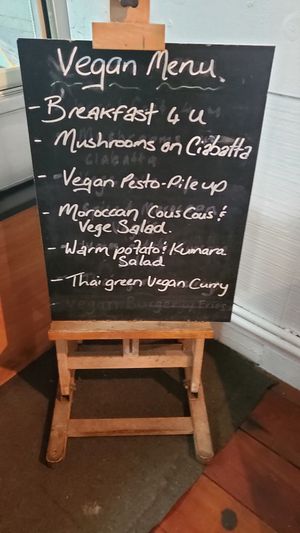 Vegan Menu.
- Breakfast 4 U
- Mushrooms on Ciabatta
- Vegan Pesto-Pile up
- Moroccan Cous Cous &
Vege Salad.
- Warm potato & Kumara
Salad
- Thai green Vegan Curry
Vegan Burger w Fries